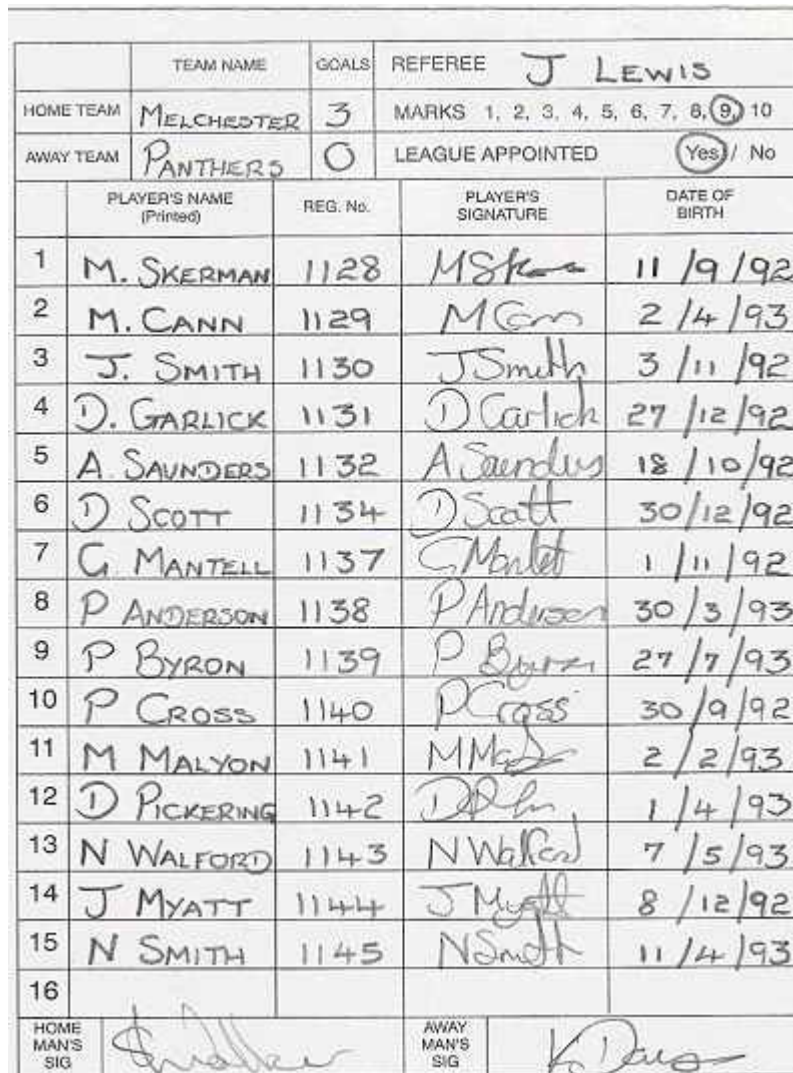 TEAM NAME GOALS REFEREE J LEWIS
HOME TEAM MELCHESTER 3 MARKS 1, 2, 3, 4, 5, 6, 7, 8, 9, 10
AWAY TEAM PANTHERS 0 LEAGUE APPOINTED Yes / No
PLAYER'S NAME (Printed) REG. No. PLAYER'S SIGNATURE DATE OF BIRTH
1 M. SKERMAN 1128 M Sk 11/9/92
2 M. CANN 1129 M Cann 2/4/93
3 J. SMITH 1130 J Smith 3/11/92
4 D. GARLICK 1131 D Garlick 27/12/92
5 A. SAUNDERS 1132 A Saunders 18/10/92
6 D SCOTT 1134 D Scott 30/12/92
7 G. MANTELL 1137 G Mantell 1/11/92
8 P ANDERSON 1138 P Anderson 30/3/93
9 P BYRON 1139 P Byron 27/7/93
10 P CROSS 1140 P Cross 30/9/92
11 M MALYON 1141 M 2/2/93
12 D PICKERING 1142 D 1/4/93
13 N WALFORD 1143 N Walford 7/5/93
14 J MYATT 1144 J Myatt 8/12/92
15 N SMITH 1145 N Smith 11/4/93
16
HOME MAN'S SIG AWAY MAN'S SIG K